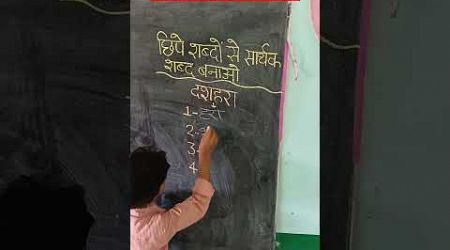 छिपे शब्दो से सार्थक
शब्द बनाओ
दशहरा
1-
2-
3-
4